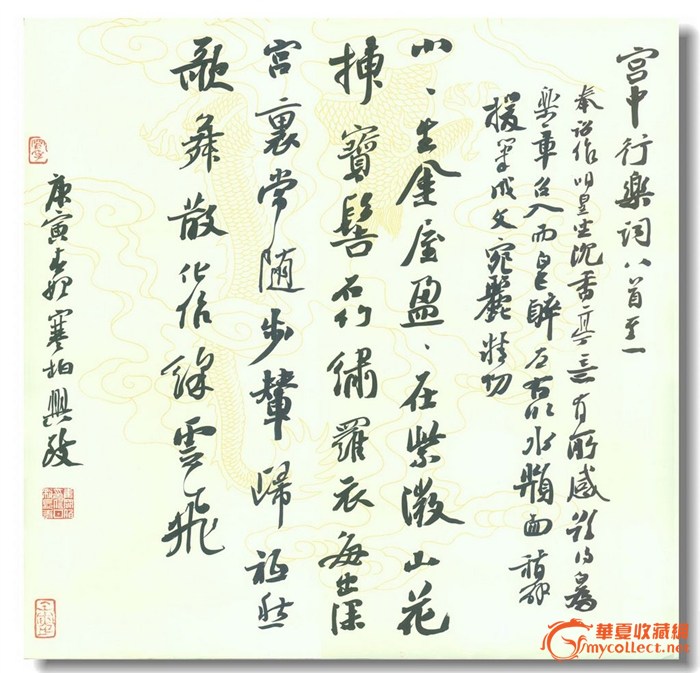 宫中行樂詞八首之一
奉詔作明皇坐沉香亭意有所感欲得白為
樂章召入而白已醉左右以水頮面稍解
援筆成文宛麗精切
小、生金屋盈、在紫微山花
插寶髻石竹繡羅衣每出深
宮裏常隨步輦歸祗愁
歌舞散化作綵雲飛
庚寅春 寒柏興致
華夏收藏網
mycollect.net